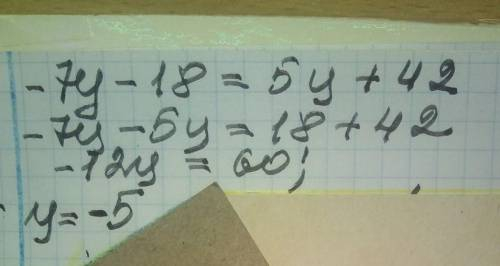 -7y - 18 = 5y + 42
-7y - 5y = 18 + 42
-12y = 60;
y = -5